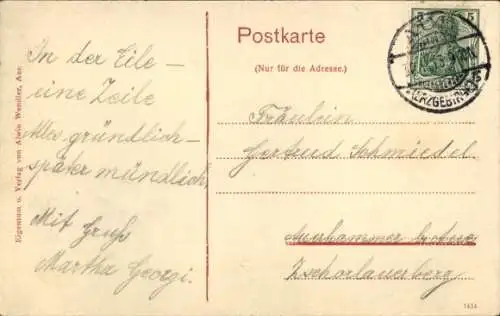 Postkarte
(Nur für die Adresse.)
In der Eile -
eine Zeile
Alles gründlich -
später mündlich
Mit Gruß
Martha Georgi.
Fräulein
Gertrud Schmiedel
Auerhammer b. Aue
Zschorlauerberg
Eigentum u. Verlag von Alwin Wendler, Aue
5
(ERZGEBIRGE)